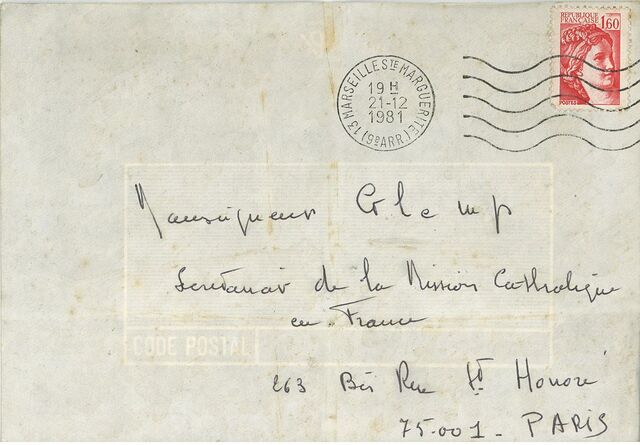 REPUBLIQUE
FRANCAISE 1,60
POSTES
13 MARSEILLE STE MARGUERITE (9E ARR)
19 H
21-12
1981
Monseigneur Glemp
Secretariat de la Mission Catholique
en France
CODE POSTAL
263 Bis Rue St Honoré
75.001 - PARIS